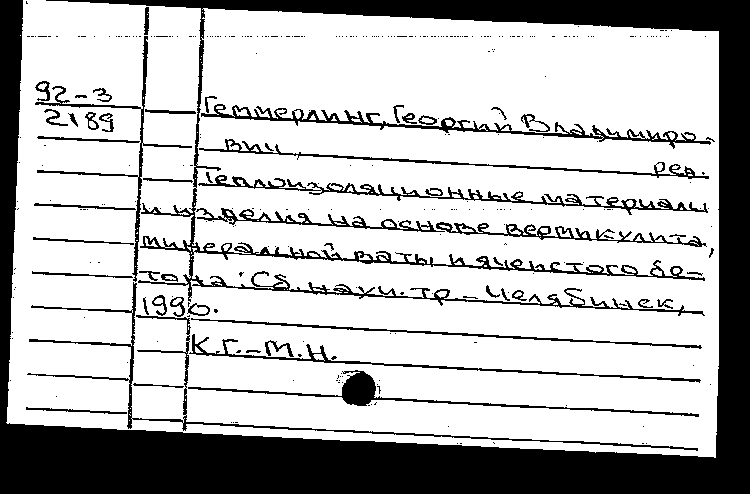 92-3
2189
Геммерлинг, Георгий Владимиро-
вич, ред.
Теплоизоляционные материалы
и изделия на основе вермикулита,
минеральной ваты и ячеистого бе-
тона: Сб. научн. тр. - Челябинск,
1990.
К.Г.-М.Н.